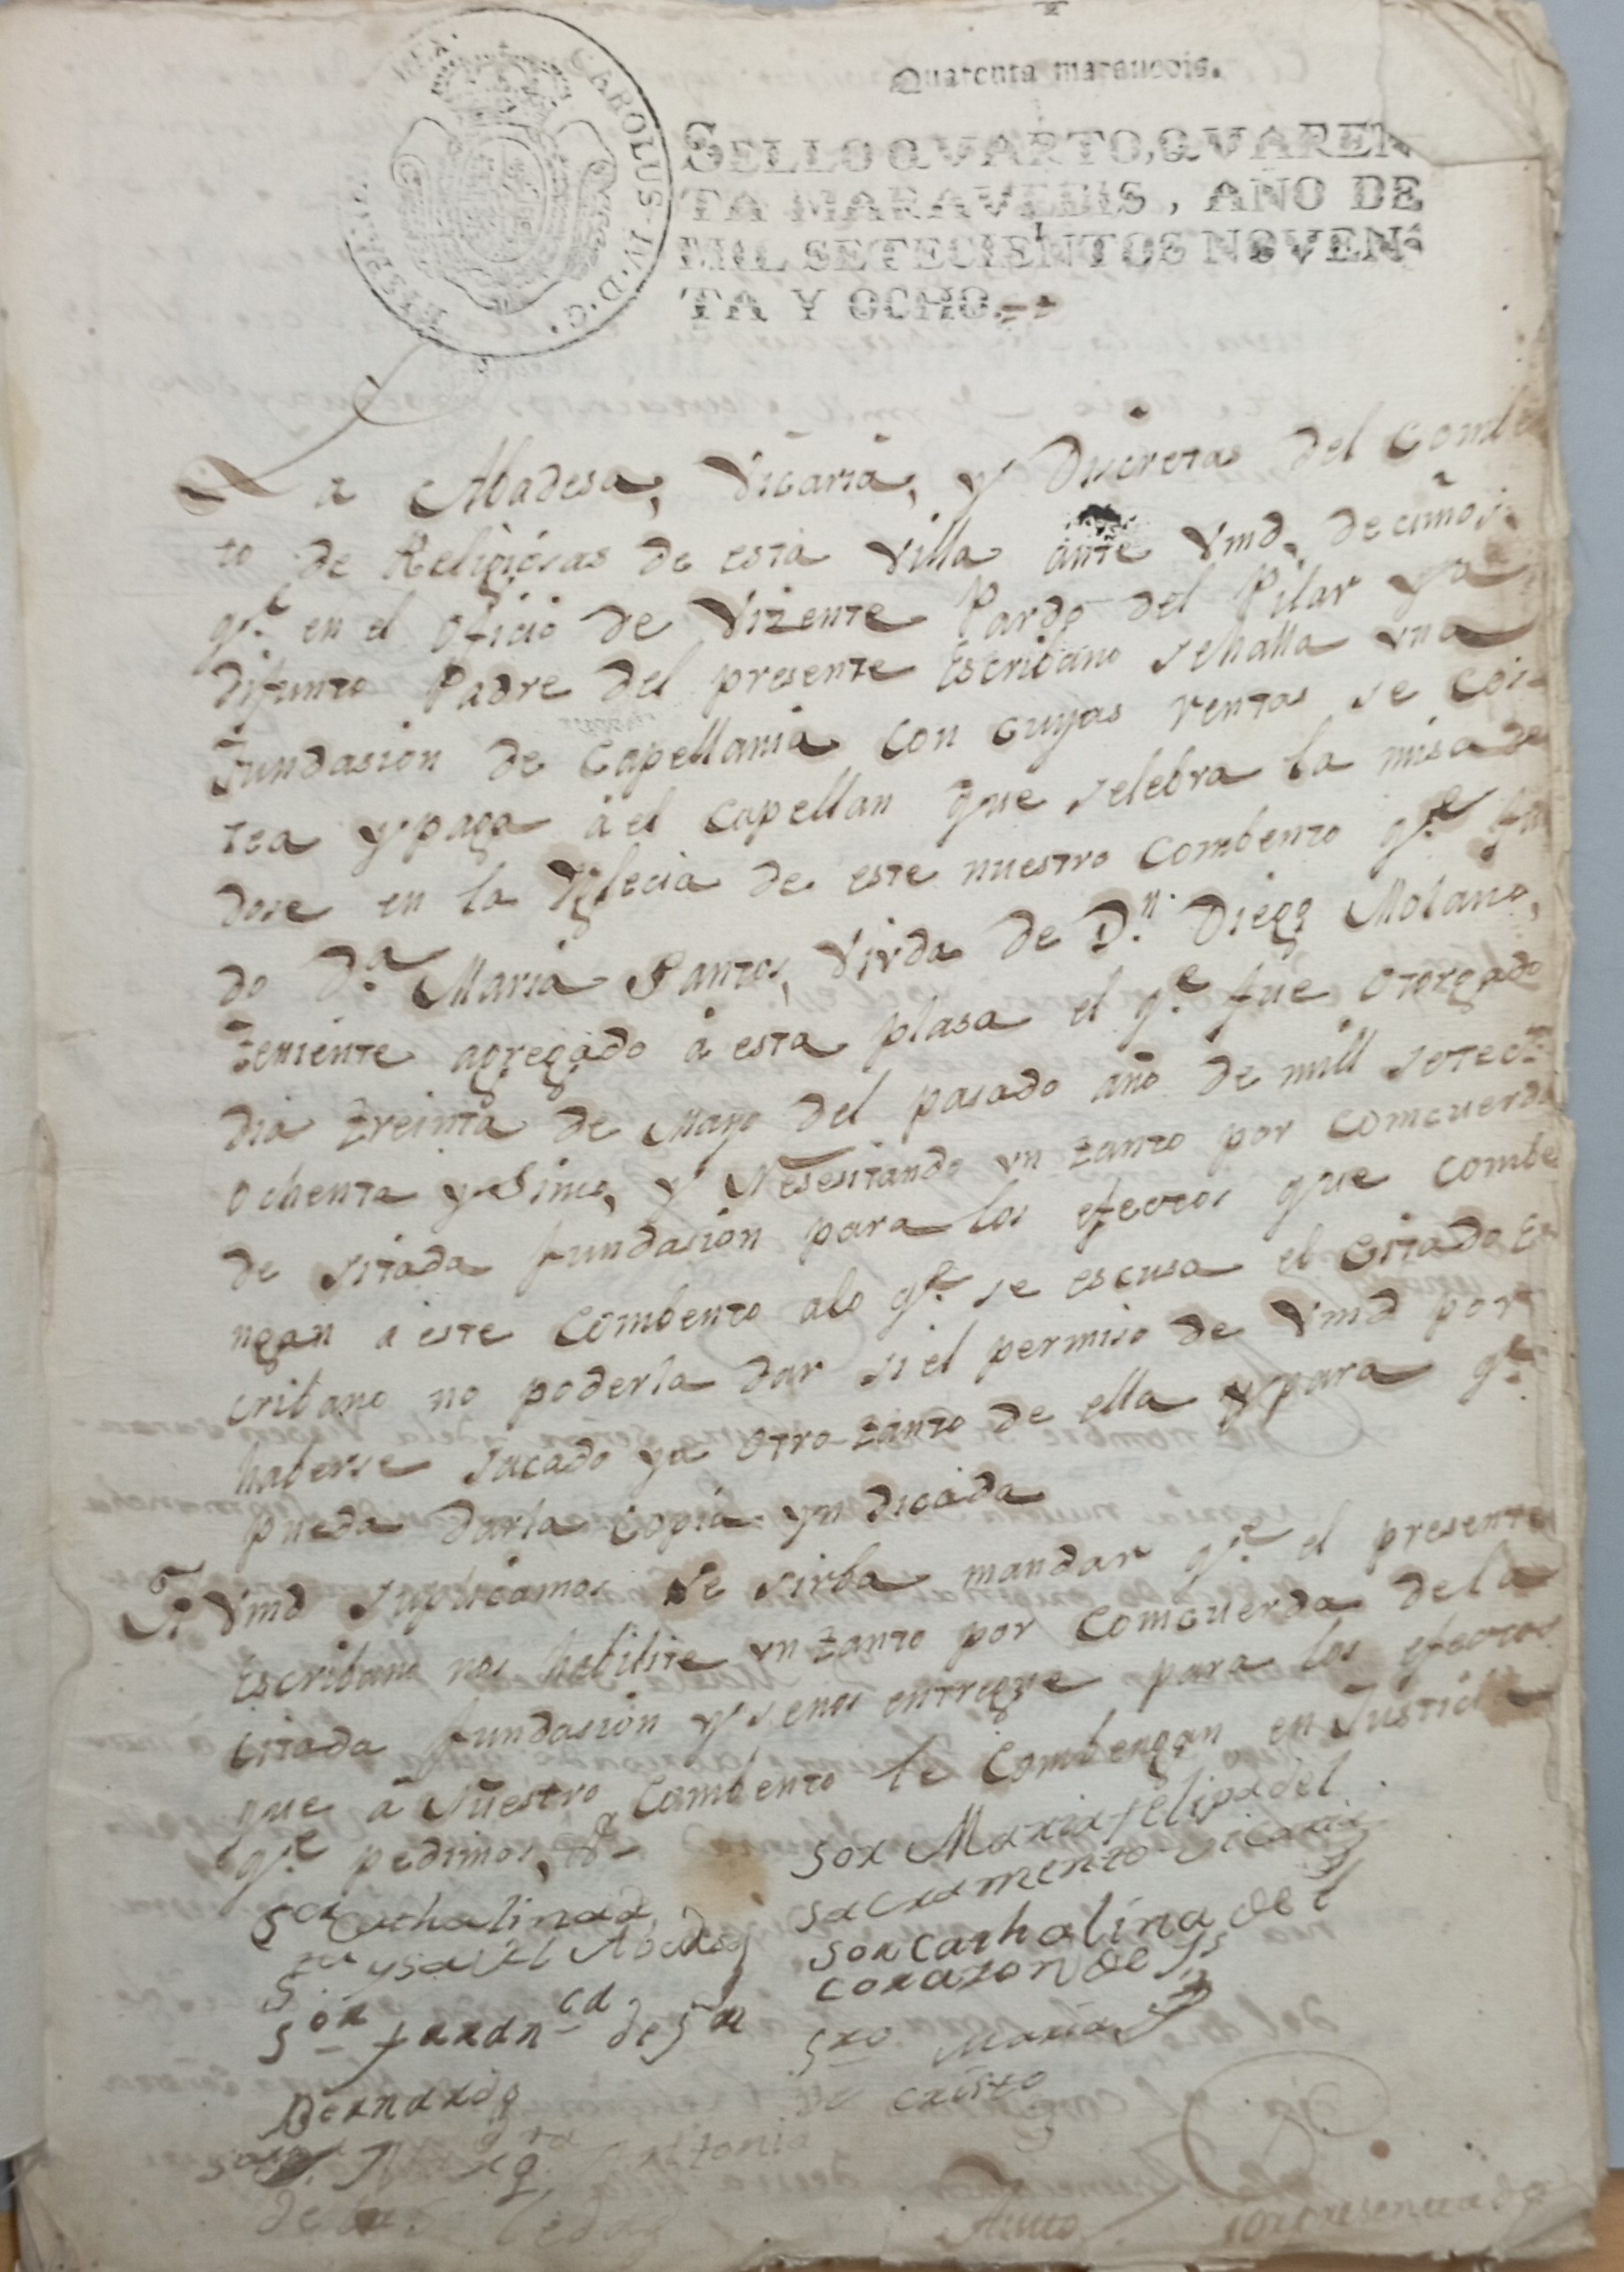 Quarenta marauedis.
CAROLUS IV D. G. HISP. REX
SELLO QVARTO, QVAREN
TA MARAVEDIS, AÑO DE
MIL SETECIENTOS NOVEN
TA Y OCHO.
La Abadesa, Vicaria, y Discretas del Comben
to de Religiosas de esta Villa ante Vmd. decimos
qe. en el oficio de Vizente Pardo del Pilar ya
difunto Padre del presente Escribano se halla vna
Fundasion de Capellania con cuyas rentas se cos
tea y paga á el Capellan que selebra la misa de
dose en la Yglecia de este nuestro Combento qe. fun
do Da. Maria Santos, Vivda de Dn. Diego Molano,
teniente agregado á esta plasa el qe. fue otorgado
dia treinta de Mayo del pasado año de mill setects.
ochenta y Sinco, y Nesesitando vn tanto por Comcuerda
de sitada fundasion para los efectos que combe
ngan á este Combento alo qe. se escusa el Citado Es
cribano no poderla dar si el permiso de Vmd por
haberse sacado ya otro tanto de ella y para qe.
pueda darla copia yndicada
A Vmd suplicamos se sirba mandar qe. el presente
Escribano nos habilite vn tanto por Comcuerda de la
citada fundasion y se nos entregue para los efectos
que á Nuestro Combento le Combengan en Justicia
qe. pedimos, &a
Sor Maria felipa del
sacramento Vicaria
Sor Cathalina de
Sta ysavel Abadesa
Sor Cathalina del
corazon de Js
Sor franca de Sn
Bernardo
Sro Maria
de Cristo
Antonia
de
Auto
Por presentada